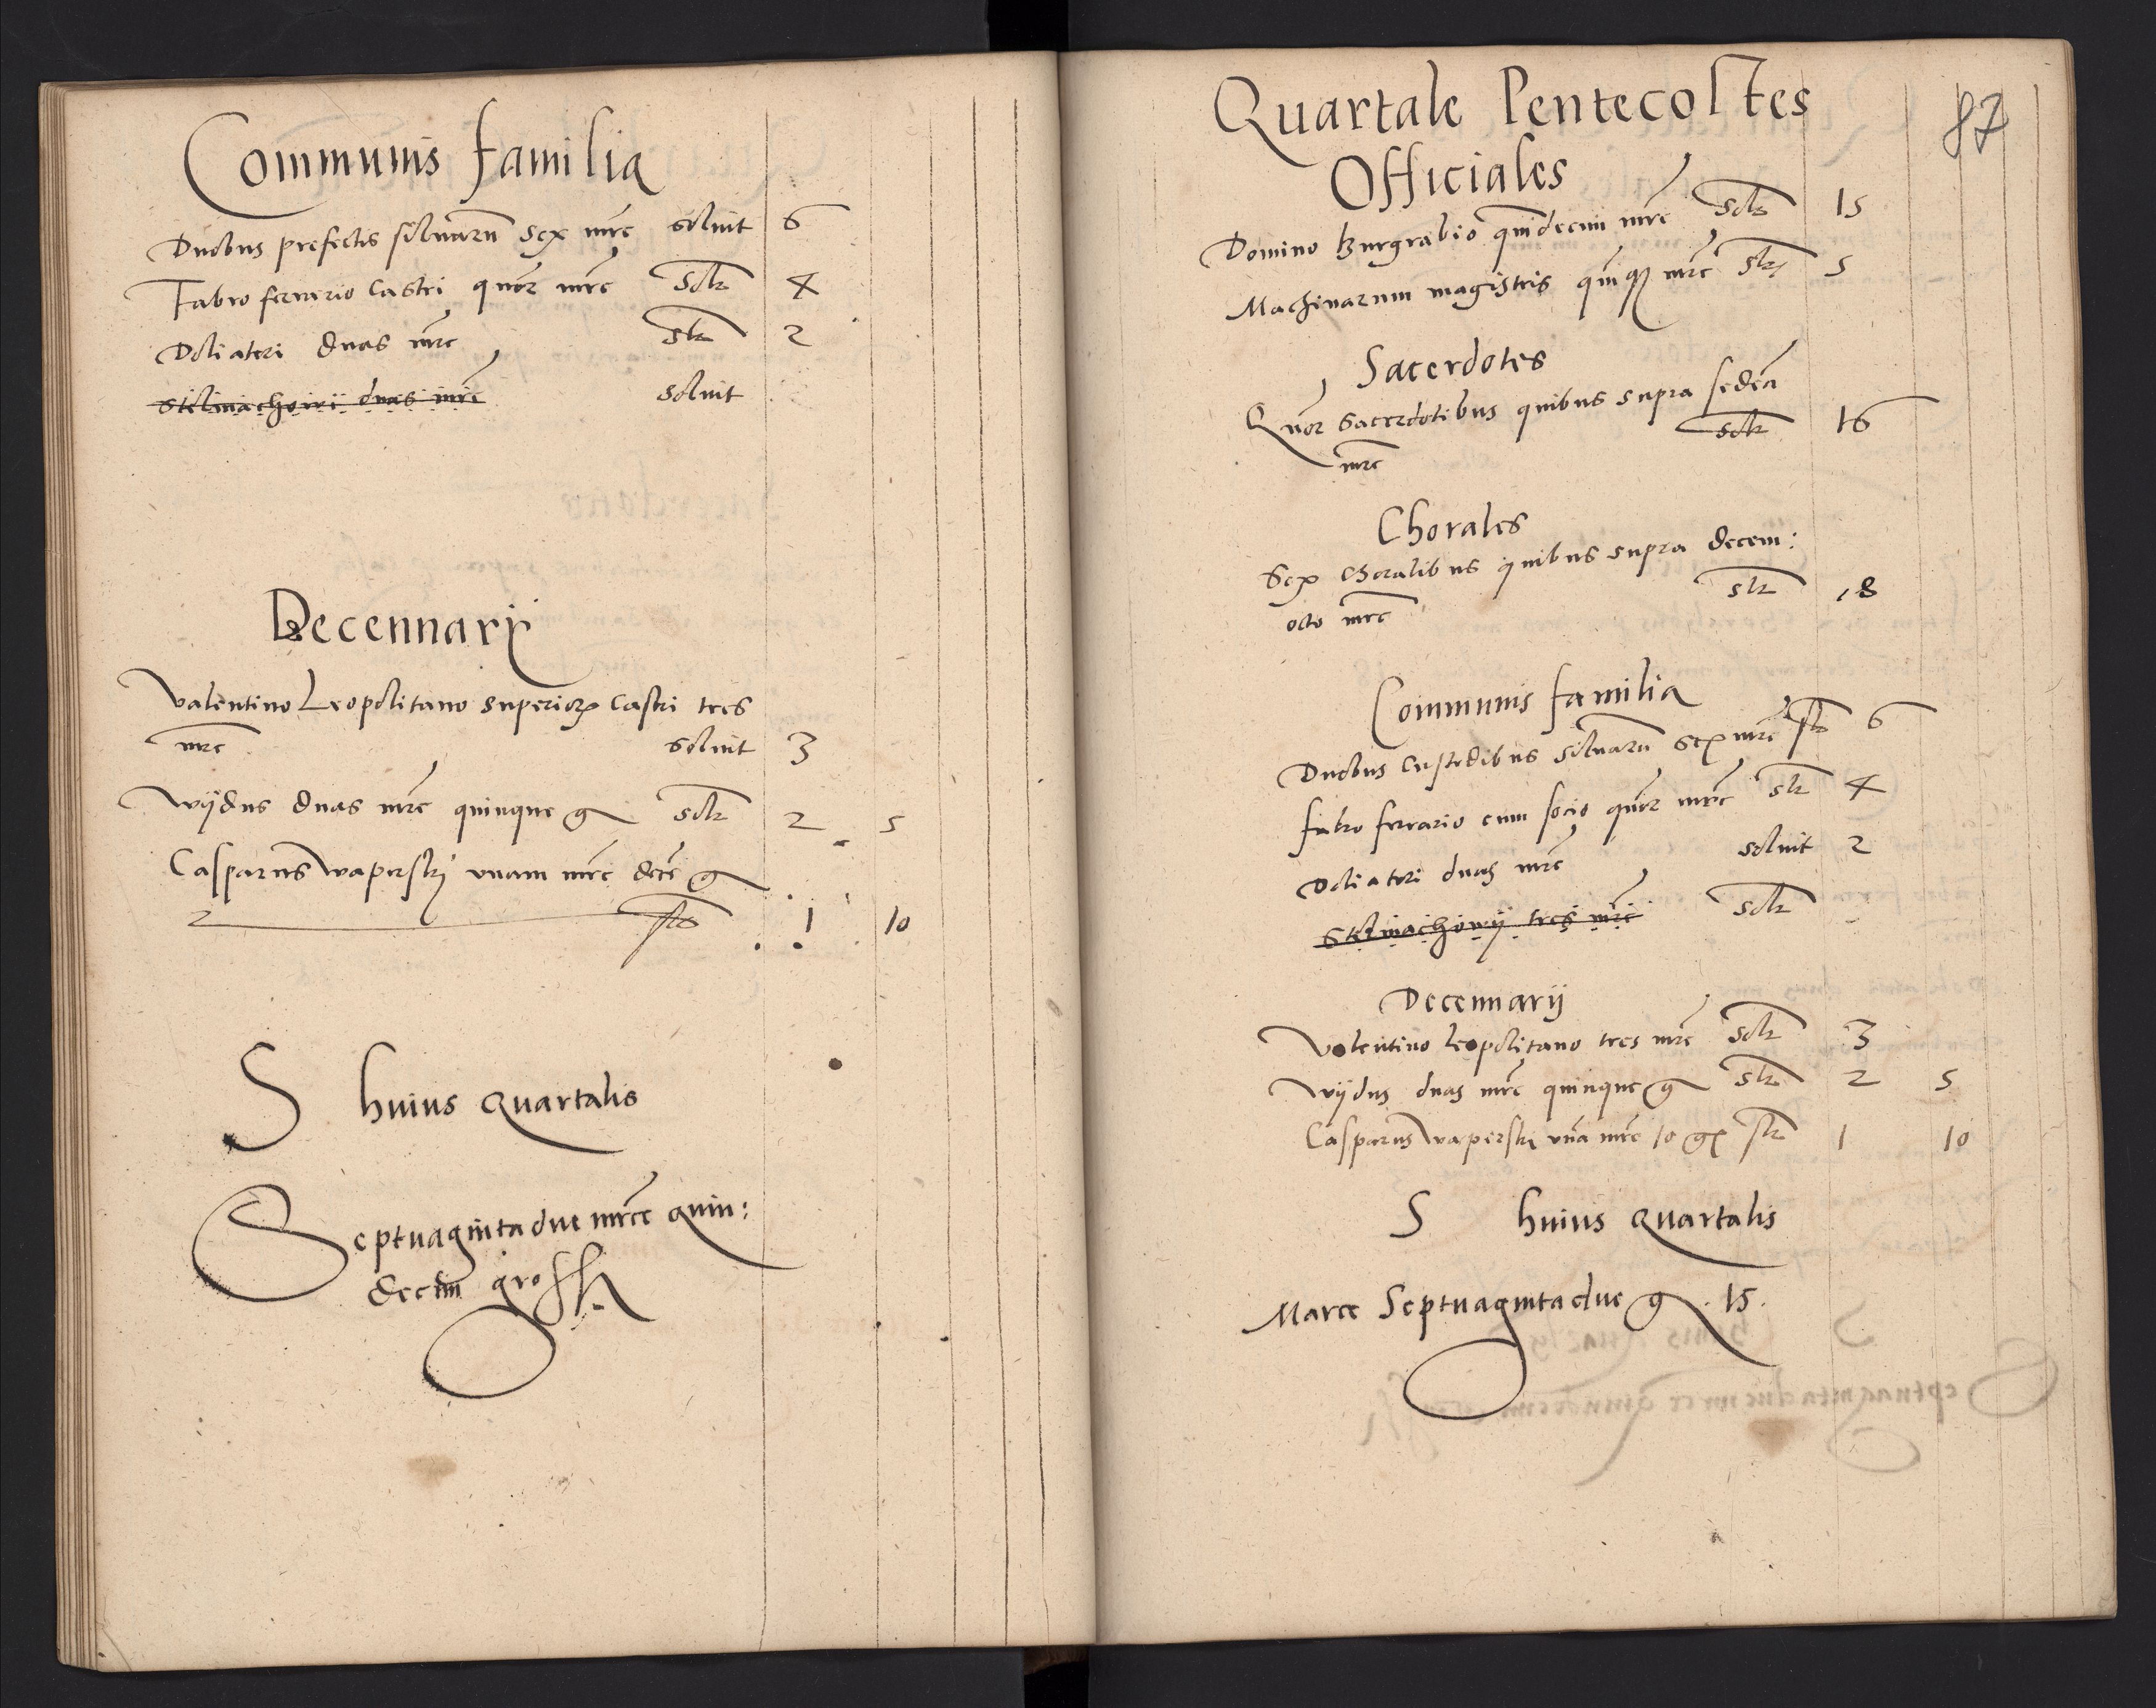 Communis familia
Duobus prefectis silvarũ sex mrc solvit 6
Fabro ferrario Castri quor mrc solt 4
Doliatori duas mrc solt 2
Stelmachowi duas mrc solvit
Decennarij
Valentino Leopolitano superior Castri tres
mrc solvit 3
Wijdus duas mrc quinque g solt 2 5
Casparus waperski unam mrc dece g
1 10
S huius quartalis
Septuaginta due mrce quin:
decim gross
Quartale Pentecostes
87
Officiales
Domino Burgrabio quindecim mrc solt 15
Machinarum magistris quinq mrc solt 5
Sacerdotes
Quor Sacerdotibus quibus supra sedeci
mrc solt 16
Chorales
Sex choralibus quibus supra decem:
octo mrc solt 18
Communis familia
Duobus custodibus silvarũ sex mrc 6
fabro ferrario cum socio quor mrc solt 4
Doliatori duas mrc solvit 2
Stelmachowij tres mrc solt
Decennarij
Valentino leopolitano tres mrc solt 3
Wijdus duas mrc quinque g solt 2 5
Casparus waperski unã mrc 10 g solt 1 10
S huius quartalis
Marce Septuaginta due g . 15 .